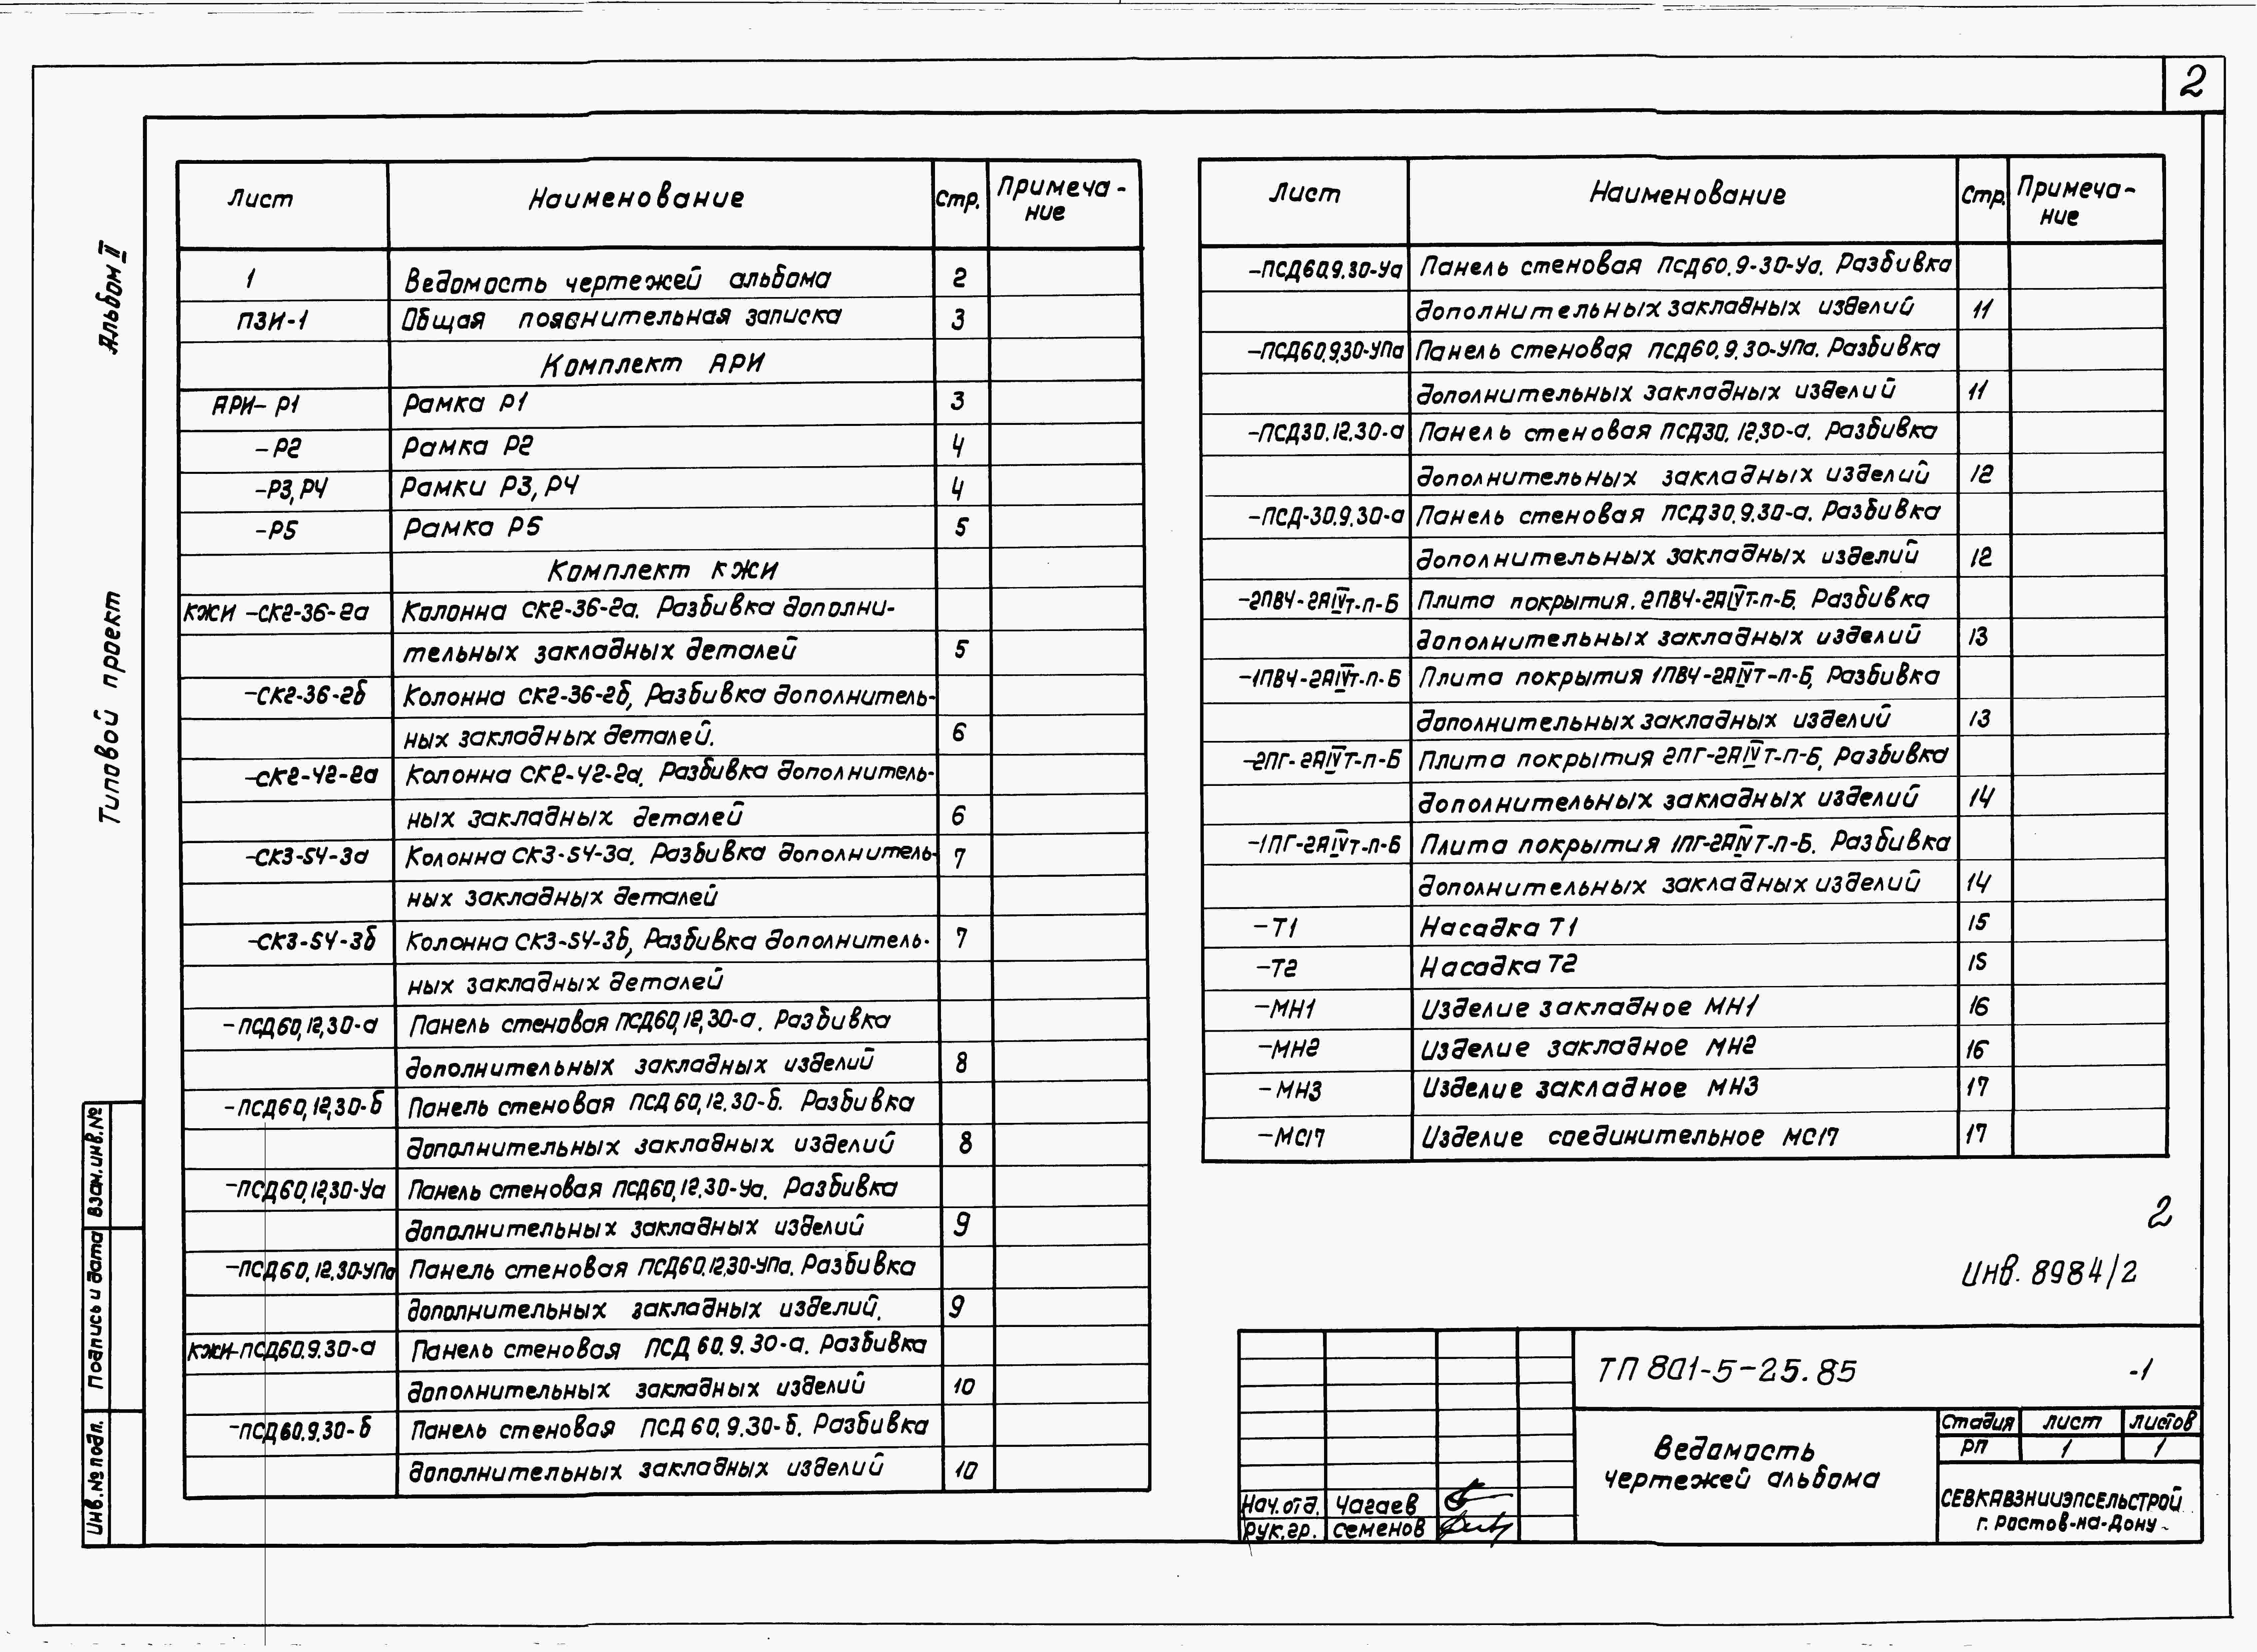 2
Альбом II
Типовой проект
Взам.инв.№
Подпись и дата
Инв.№ подл.
Лист Наименование Стр. Примеча-
ние
1 Ведомость чертежей альбома 2
ПЗИ-1 Общая пояснительная записка 3
Комплект АРИ
АРИ-Р1 Рамка Р1 3
-Р2 Рамка Р2 4
-Р3, Р4 Рамки Р3, Р4 4
-Р5 Рамка Р5 5
Комплект КЖИ
КЖИ-СК2-36-2а Колонна СК2-36-2а. Разбивка дополни-
тельных закладных деталей 5
-СК2-36-2б Колонна СК2-36-2б, Разбивка дополнитель-
ных закладных деталей. 6
-СК2-42-2а Колонна СК2-42-2а. Разбивка дополнитель-
ных закладных деталей 6
-СК3-54-3а Колонна СК3-54-3а. Разбивка дополнитель- 7
ных закладных деталей
-СК3-54-3б Колонна СК3-54-3б, Разбивка дополнитель- 7
ных закладных деталей
-ПСД60,12,30-а Панель стеновая ПСД60,12,30-а. Разбивка
дополнительных закладных изделий 8
-ПСД60,12,30-б Панель стеновая ПСД 60,12.30-б. Разбивка
дополнительных закладных изделий 8
-ПСД60,12,30-Уа Панель стеновая ПСД60,12.30-Уа. Разбивка
дополнительных закладных изделий 9
-ПСД60,12.30-УПа Панель стеновая ПСД60.12.30-УПа. Разбивка
дополнительных закладных изделий. 9
КЖИ-ПСД60.9.30-а Панель стеновая ПСД 60.9.30-а. Разбивка
дополнительных закладных изделий 10
-ПСД60.9.30-б Панель стеновая ПСД 60.9.30-б. Разбивка
дополнительных закладных изделий 10
Лист Наименование Стр. Примеча-
ние
-ПСД60.9.30-Уа Панель стеновая ПСД60.9-30-Уа. Разбивка
дополнительных закладных изделий 11
-ПСД60.9.30-УПа Панель стеновая ПСД60.9.30-УПа. Разбивка
дополнительных закладных изделий 11
-ПСД30.12.30-а Панель стеновая ПСД30.12.30-а. Разбивка
дополнительных закладных изделий 12
-ПСД-30.9.30-а Панель стеновая ПСД30.9.30-а. Разбивка
дополнительных закладных изделий 12
-2ПВ4-2АIVт-п-Б Плита покрытия. 2ПВ4-2АIVт-п-Б. Разбивка
дополнительных закладных изделий 13
-1ПВ4-2АIVт-п-Б Плита покрытия 1ПВ4-2АIVт-п-Б, Разбивка
дополнительных закладных изделий 13
-2ПГ-2АIVт-п-Б Плита покрытия 2ПГ-2АIVт-п-Б, Разбивка
дополнительных закладных изделий 14
-1ПГ-2АIVт-п-Б Плита покрытия 1ПГ-2АIVт-п-Б. Разбивка
дополнительных закладных изделий 14
-Т1 Насадка Т1 15
-Т2 Насадка Т2 15
-МН1 Изделие закладное МН1 16
-МН2 Изделие закладное МН2 16
-МН3 Изделие закладное МН3 17
-МС17 Изделие соединительное МС17 17
2
Инв. 8984/2
ТП 801-5-25.85 -1
Ведомость
чертежей альбома
Стадия Лист Листов
РП 1 1
Нач.отд. Чагаев
Рук.гр. Семенов
СЕВКАВЗНИИЭПСЕЛЬСТРОЙ
г. Ростов-на-Дону